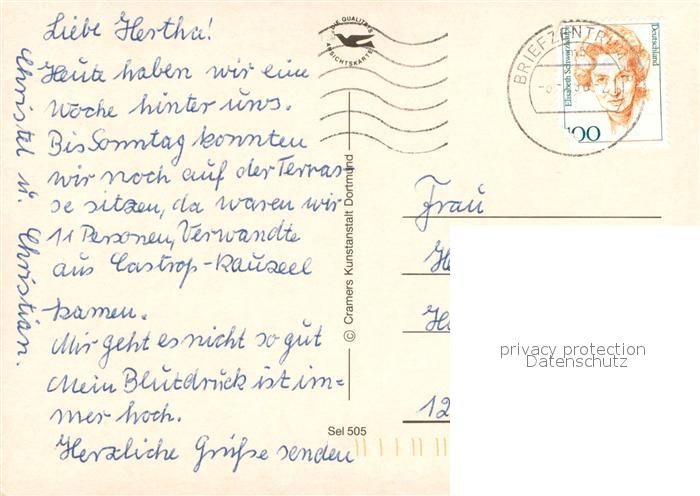 Liebe Hertha!
Heute haben wir eine
Woche hinter uns.
Bis Sonntag konnten
wir noch auf der Terras-
se sitzen, da waren wir
11 Personen, Verwandte
aus Castrop-Rauxeel
kamen.
Mir geht es nicht so gut
Mein Blutdruck ist im=
mer hoch.
Herzliche Grüße senden
Christel u. Christian.
DIE QUALITÄTS
ANSICHTSKARTE
© Cramers Kunstanstalt Dortmund
Sel 505
BRIEFZENTRUM
Elisabeth Schwarzhaupt
Deutschland
100
Frau
12
privacy protection
Datenschutz